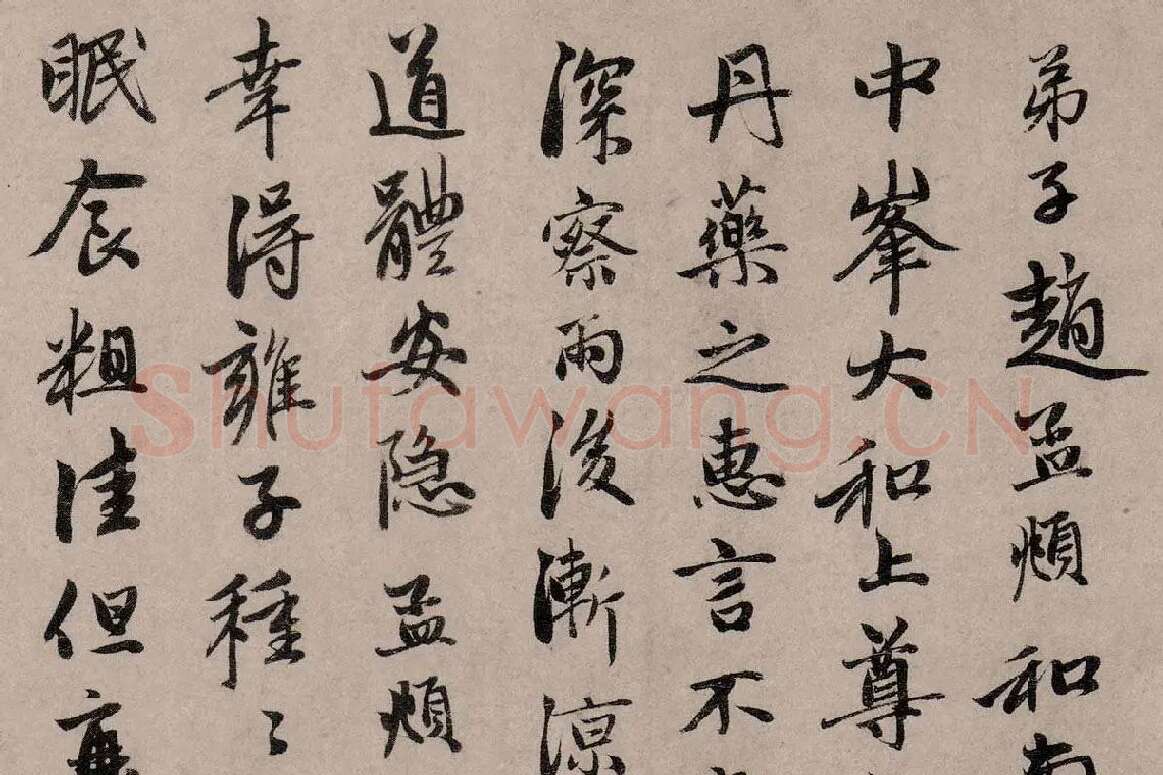 弟子趙孟頫和南
中峯大和上尊
丹藥之惠言不
深察雨後漸涼
道體安隱孟頫
幸得雍子種〻
眠食粗佳但
Shufawang.CN